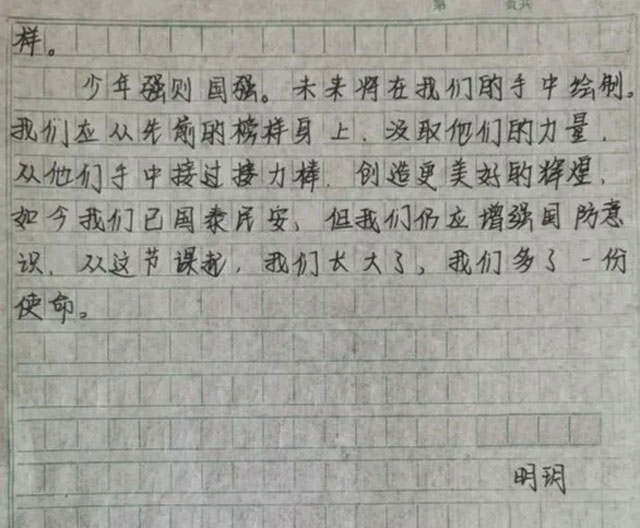 第 页共
样。
少年强则国强。未来将在我们的手中绘制。
我们应从先前的榜样身上、汲取他们的力量、
从他们手中接过接力棒、创造更美好的辉煌、
如今我们已国泰民安、但我们仍应增强国防意
识、从这节课起，我们长大了，我们多了一份
使命。
明玥